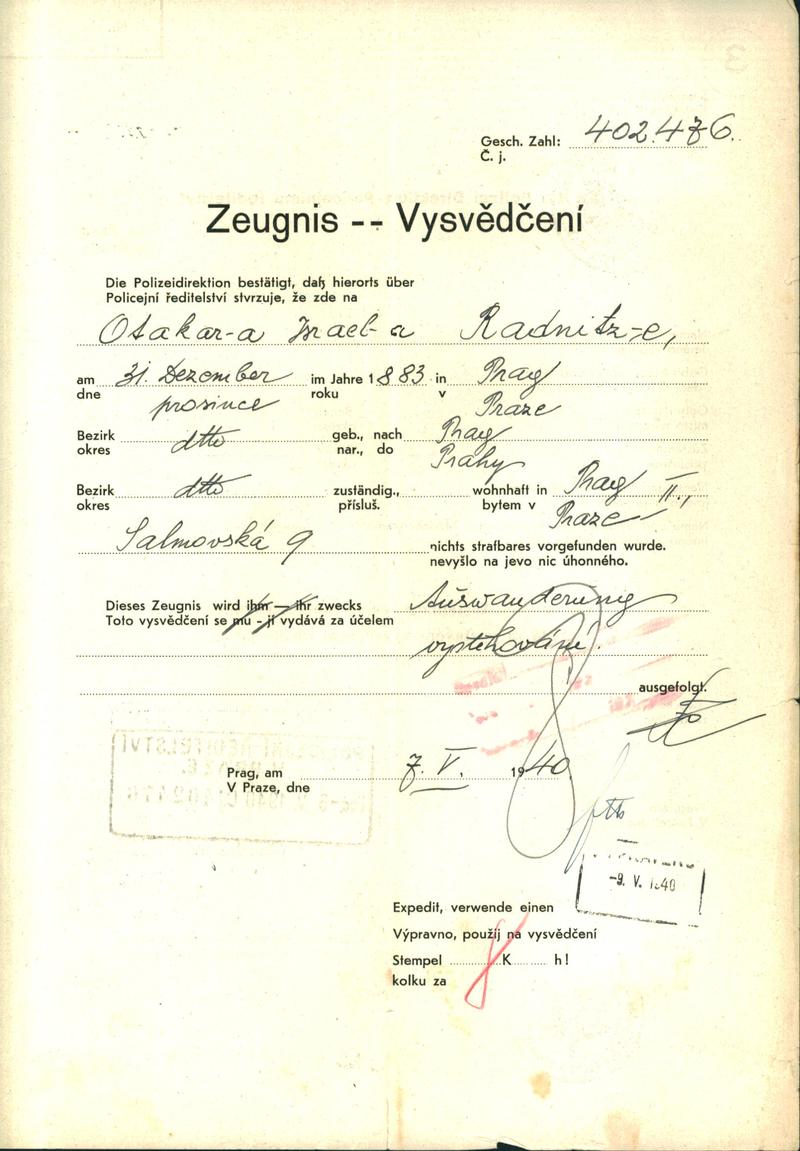 Gesch. Zahl: 402.476.
Č. j.
Zeugnis -- Vysvědčení
Die Polizeidirektion bestätigt, daß hierorts über
Policejní ředitelství stvrzuje, že zde na
Otakar-a Israel-a Radnitz-e,
am 31. Dezember im Jahre 1883 in Prag
dne prosince roku v Praze
Bezirk dtto geb., nach Prag
okres nar., do Prahy
Bezirk dtto zuständig., wohnhaft in Prag II.,
okres přísluš. bytem v Praze
Salmovská 9 nichts strafbares vorgefunden wurde.
nevyšlo na jevo nic úhonného.
Dieses Zeugnis wird ihm — ihr zwecks Auswanderung
Toto vysvědčení se mu - jí vydává za účelem
vystěhování.
ausgefolgt.
Prag, am 7. V. 1940
V Praze, dne
-9. V. 1940
Expedit, verwende einen
Výpravno, použij na vysvědčení
Stempel 8 K h!
kolku za